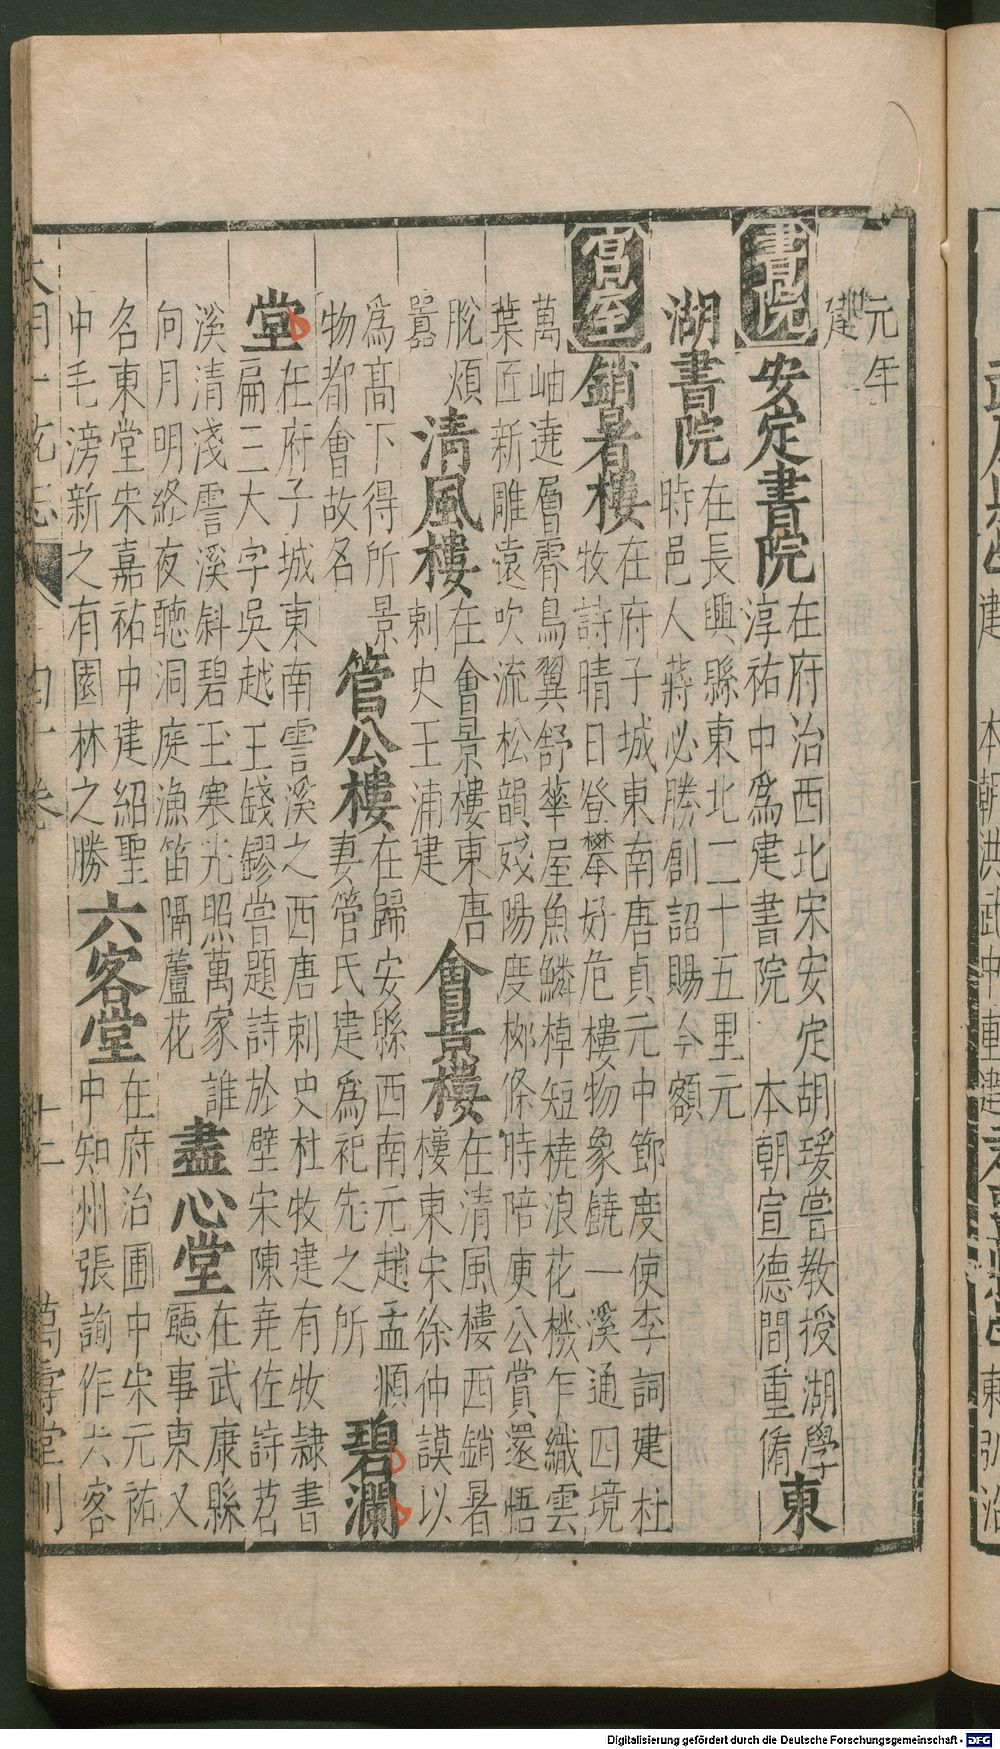 元年
建
書院
安定書院
在府治西北宋安定胡瑗嘗教授湖學
淳祐中爲建書院 本朝宣德間重脩
東
湖書院
在長興縣東北二十五里元
時邑人蔣必勝創詔賜今額
宫室
銷暑樓
在府子城東南唐貞元中節度使李詞建杜
牧詩晴日登攀好危樓物象饒一溪通四境
萬岫遶層霄鳥翼舒華屋魚鱗棹短橈浪花機乍織雲
葉匠新雕遠吹流松韻殘陽度柳條時陪庾公賞還悟
脫煩
囂
清風樓
在會景樓東唐
刺史王浦建
會景樓
在清風樓西銷暑
樓東宋徐仲謨以
爲高下得所景
物都會故名
管公樓
在歸安縣西南元趙孟頫
妻管氏建爲祀先之所
碧瀾
堂
在府子城東南霅溪之西唐刺史杜牧建有牧隷書
扁三大字吳越王錢鏐嘗題詩於壁宋陳堯佐詩苕
溪清淺霅溪斜碧玉寒光照萬家誰
向月明終夜聽洞庭漁笛隔蘆花
盡心堂
在武康縣
聽事東又
名東堂宋嘉祐中建紹聖
中毛滂新之有園林之勝
六客堂
在府治圃中宋元祐
中知州張詢作六客
大明一統志 四十卷 十二 萬壽堂刊
Digitalisierung gefördert durch die Deutsche Forschungsgemeinschaft - DFG